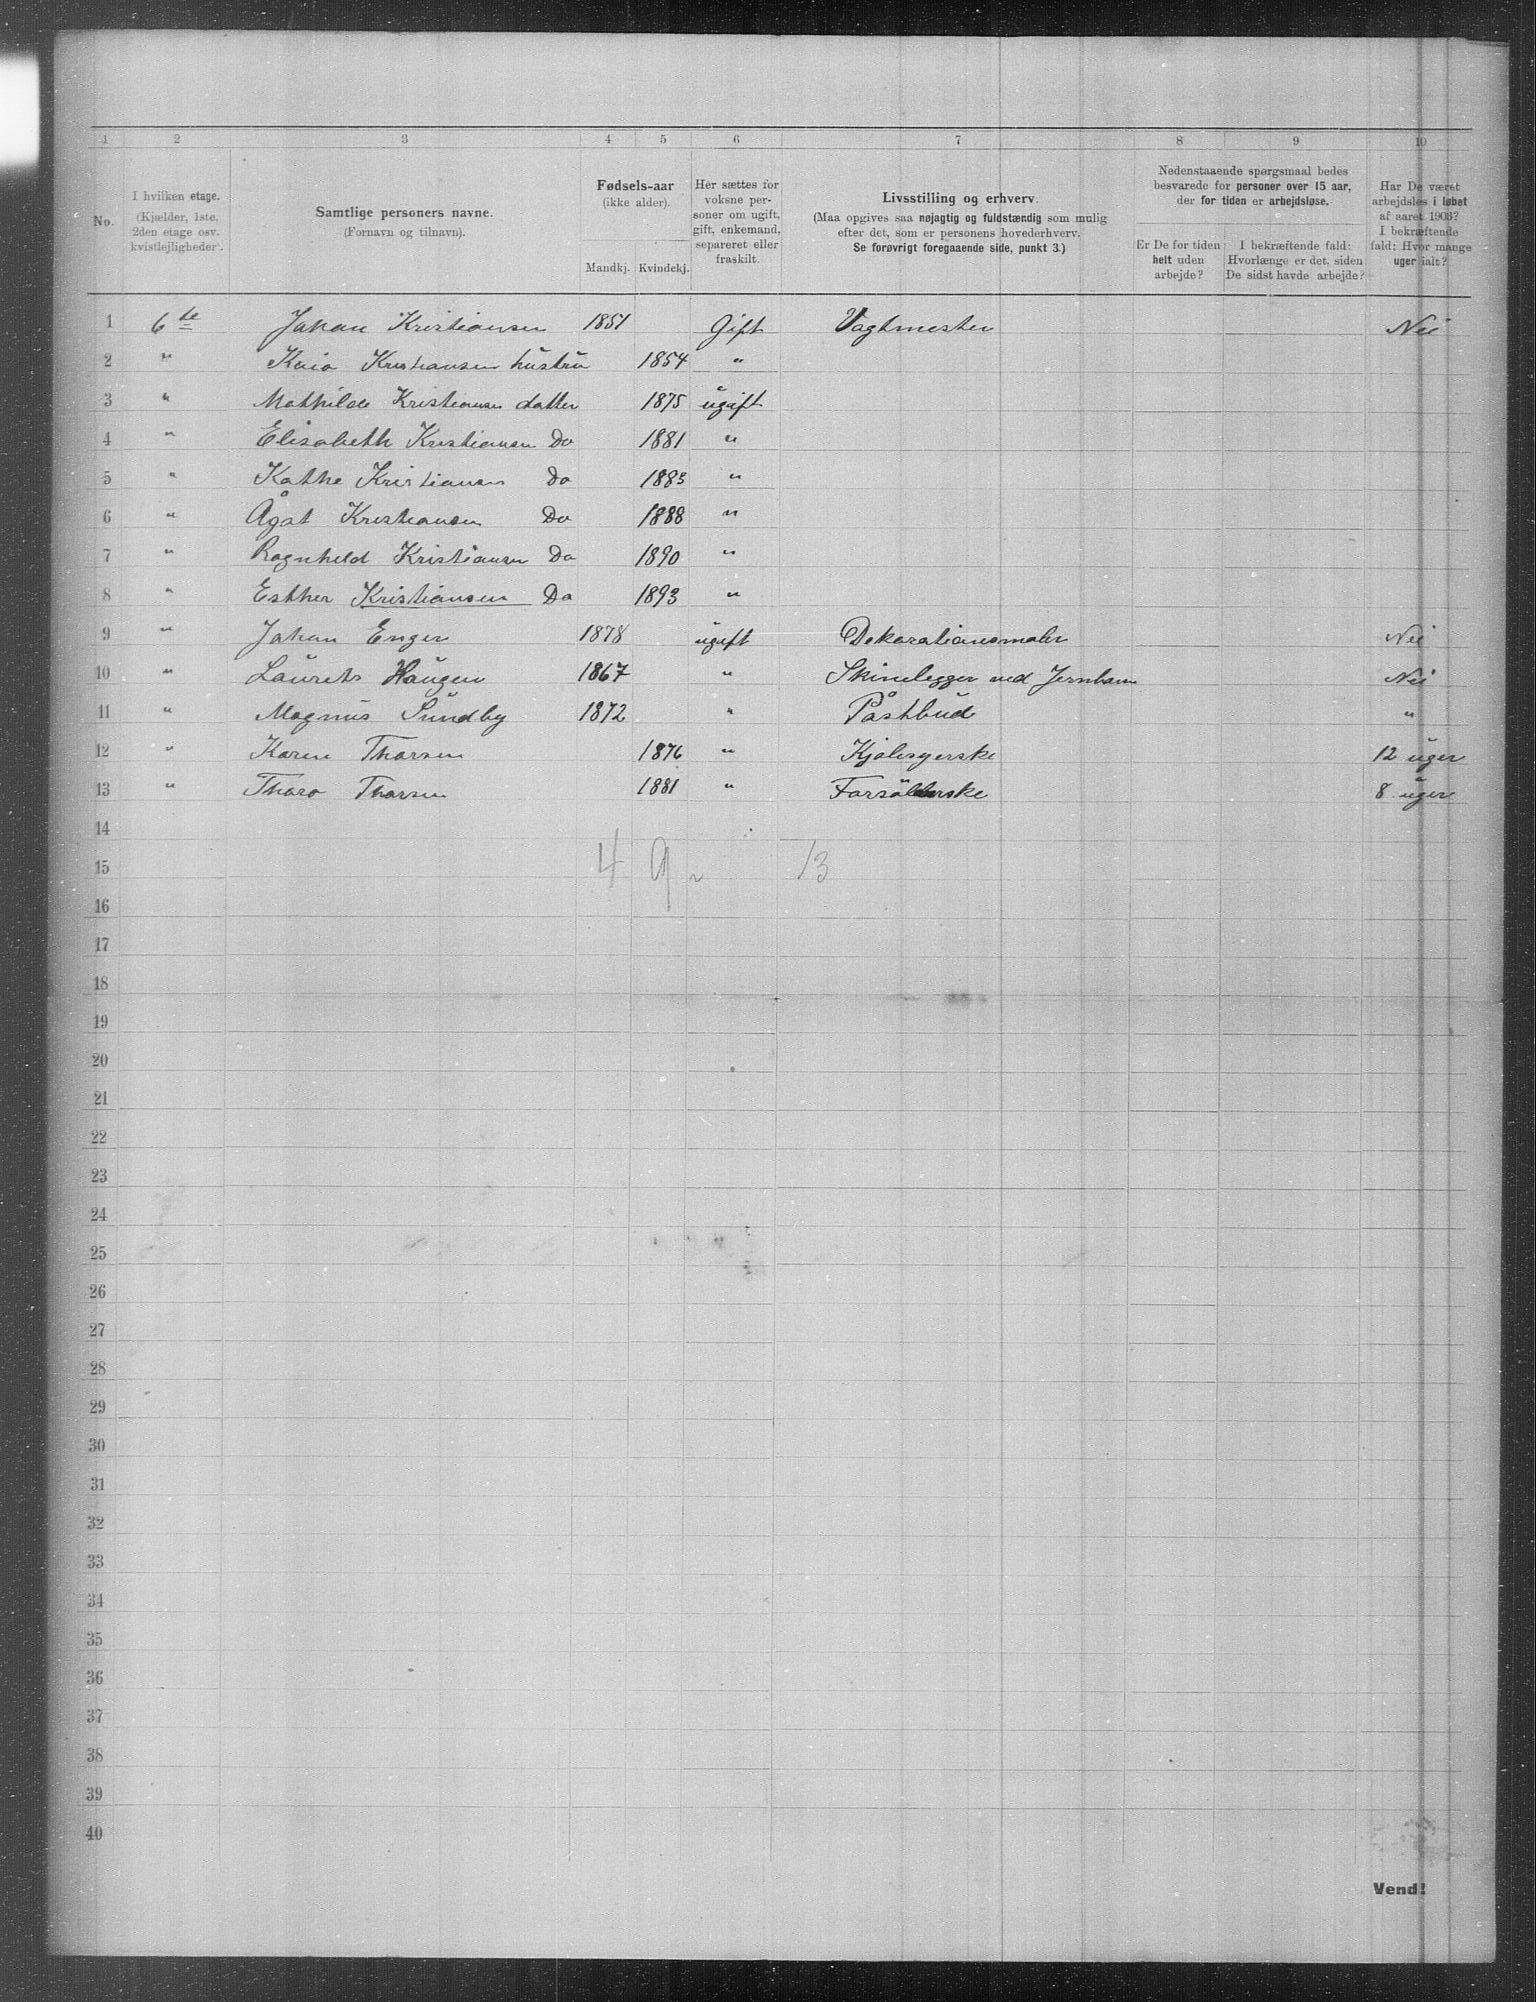 1 2 3 4 5 6 7 8 9 10
No.
I hvilken etage.
(Kjælder, 1ste,
2den etage osv.
kvistlejligheder).
Samtlige personers navne.
(Fornavn og tilnavn).
Fødsels-aar
(ikke alder).
Mandkj. Kvindekj.
Her sættes for
voksne per-
soner om ugift,
gift, enkemand,
separeret eller
fraskilt.
Livsstilling og erhverv.
(Maa opgives saa nøjagtig og fuldstændig som mulig
efter det, som er personens hovederhverv.
Se forøvrigt foregaaende side, punkt 3.)
Nedenstaaende spørgsmaal bedes
besvarede for personer over 15 aar,
der for tiden er arbejdsløse.
Er De for tiden
helt uden
arbejde?
I bekræftende fald:
Hvorlænge er det, siden
De sidst havde arbejde?
Har De været
arbejdsløs i løbet
af aaret 1903?
I bekræftende
fald: Hvor mange
uger ialt?
1 6te Johan Kristiansen 1851 Gift Vagtmester Nei
2 " Kaia Kristiansen hustru 1854 "
3 " Mathilde Kristiansen datter 1875 ugift
4 " Elisabeth Kristiansen Do 1881 "
5 " Kathe Kristiansen Do 1883 "
6 " Ågat Kristiansen Do 1888 "
7 " Ragnhild Kristiansen Do 1890 "
8 " Esther Kristiansen Do 1893 "
9 " Johan Enger 1878 ugift Dekorationsmaler Nei
10 " Laurets Haugen 1867 " Skinelegger ved Jernbann Nei
11 " Magnus Sundby 1872 " Påstbud "
12 " Karen Thorsen 1876 " Kjolesyerske 12 uger
13 " Thora Thorsen 1881 " 8 uger
14
15 4 9 13
16
17
18
19
20
21
22
23
24
25
26
27
28
29
30
31
32
33
34
35
36
37
38
39
40
Vend!